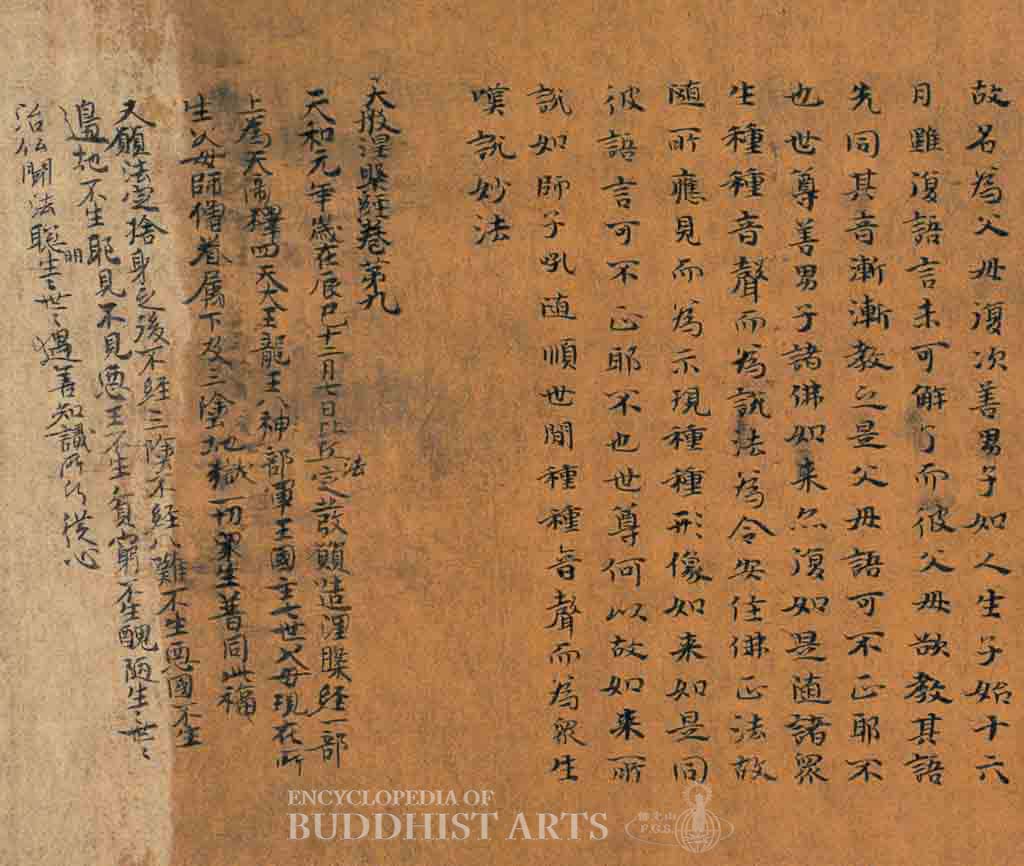 故名為父母復次善男子如人生子始十六
月雖復語言未可解了而彼父母欲教其語
先同其音漸漸教之是父母語可不正耶不
也世尊善男子諸佛如来亦復如是随諸眾
生種種音聲而為說法為令安住佛正法故
随所應見而為示現種種形像如来如是同
彼語言可不正耶不也世尊何以故如来所
說如師子吼随順世間種種音聲而為眾生
嘆說妙法
大般涅槃經卷第九
天和元年歲在辰巳十二月七日比丘法定發願造涅槃經一部
上為天帝釋四天大王龍王八神部軍王國主七世父母現在所
生父母師僧眷属下及三塗地獄一切眾生普同此福
又願法定捨身之後不經三塗不經八難不生惡國不生
邊地不生耶見不見惡王不生貧窮不生醜陋生生世世
治仏聞法聰明生生世世遇善知識所行從心
ENCYCLOPEDIA OF
BUDDHIST ARTS
佛光山
F.G.S.